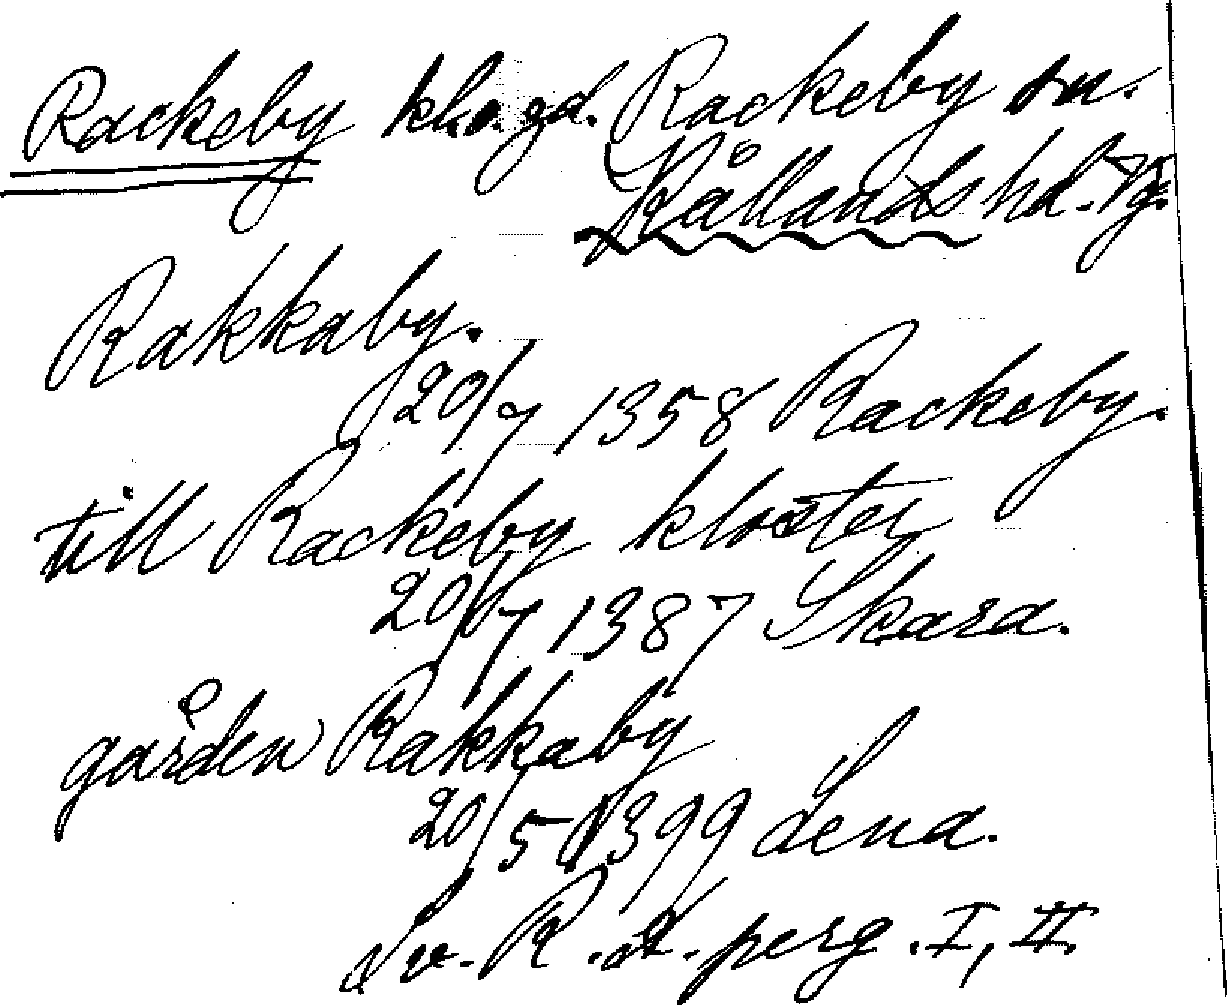 Rackeby kl. o. gd. Rackeby sn.
Kållands hd. Vg.
Rakkaby.
20/7 1358 Rackeby.
till Rackeby kloster
20/7 1387 Skara.
gården Rakkaby
20/5 1399 Lena.
Sv. R. A. perg. I, II.